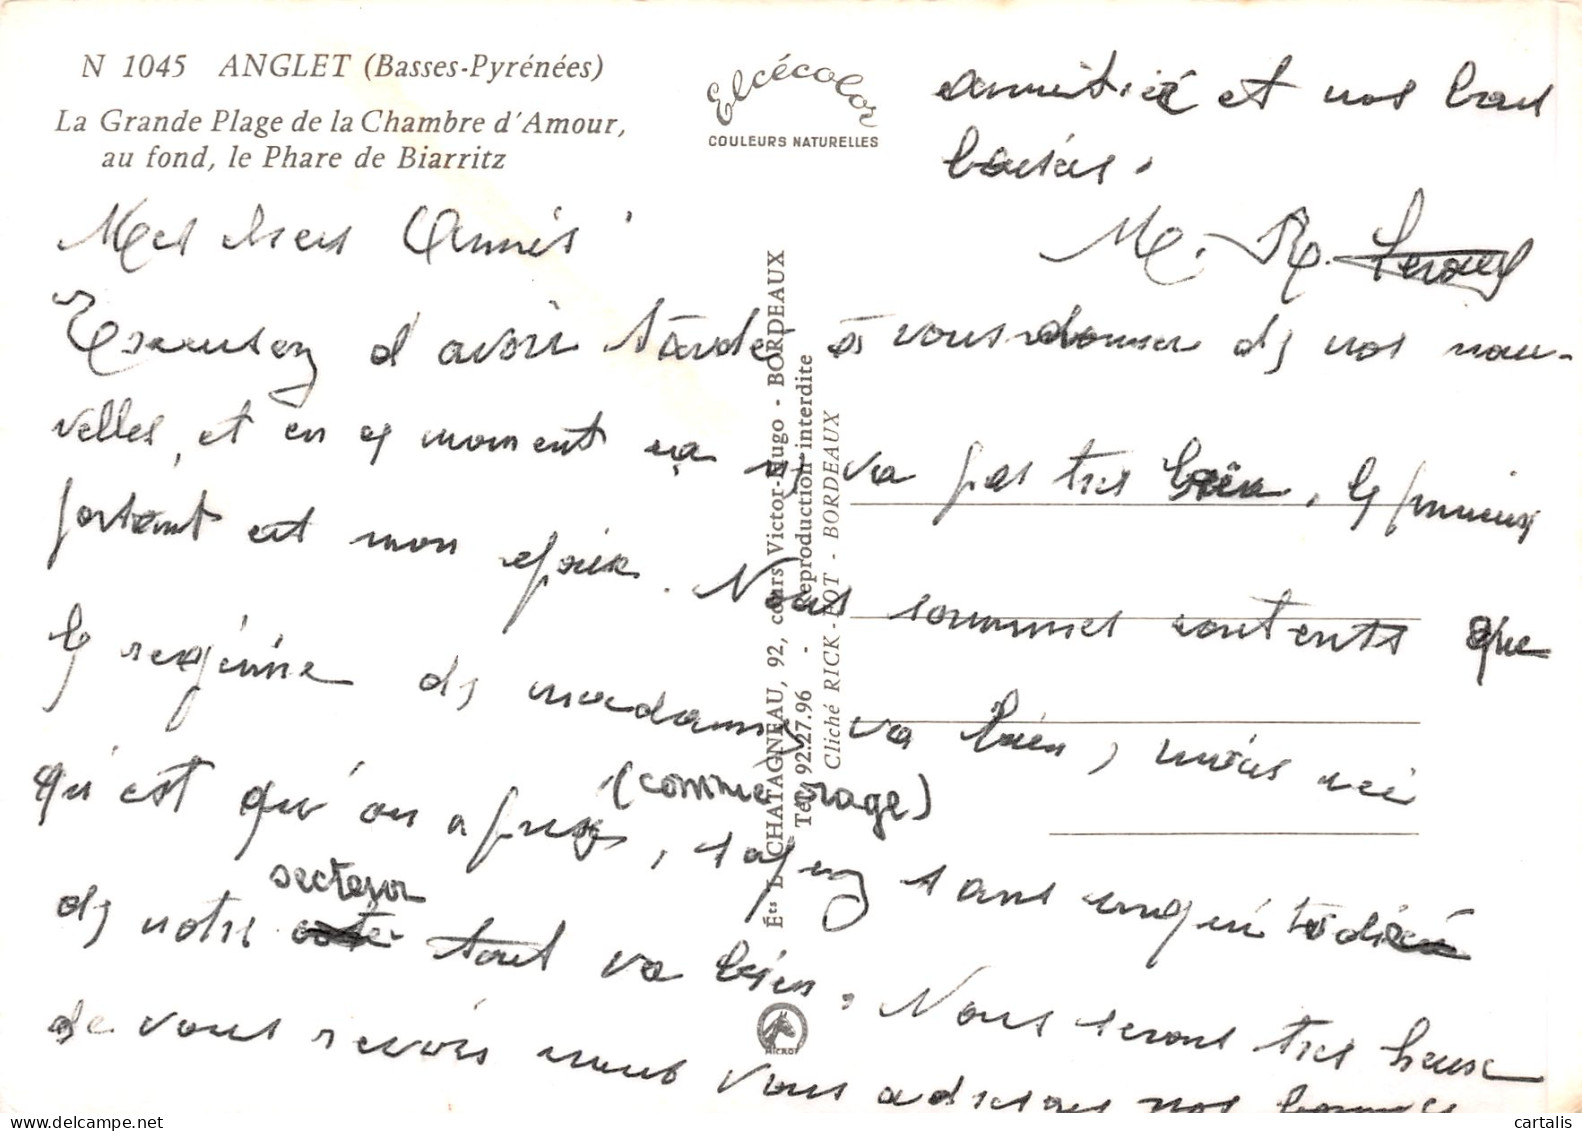 N 1045 ANGLET (Basses-Pyrénées)
La Grande Plage de la Chambre d'Amour,
au fond, le Phare de Biarritz
Elcécolor
COULEURS NATURELLES
Mes chers Amis
Excusez d'avoir tardé à vous donner de nos nou-
velles, et en ce moment ça ne va pas très bien, le premier
portant est mon . Nous sommes contents que
le régime de madame va bien, mais ici
qu'est qu'on a pris (comme orage), sans inquiétude
de notre secteur tout va bien. Nous serons très heureux
de vous revoir nous vous adressons nos bonnes
amitiés et nos bons
baisers.
M. R. Leroux
Éts L. CHATAGNEAU, 92, cours Victor-Hugo - BORDEAUX
Tél. 92.27.96 - Reproduction interdite
Cliché RICK - LOT - BORDEAUX
MICROT
cartalis